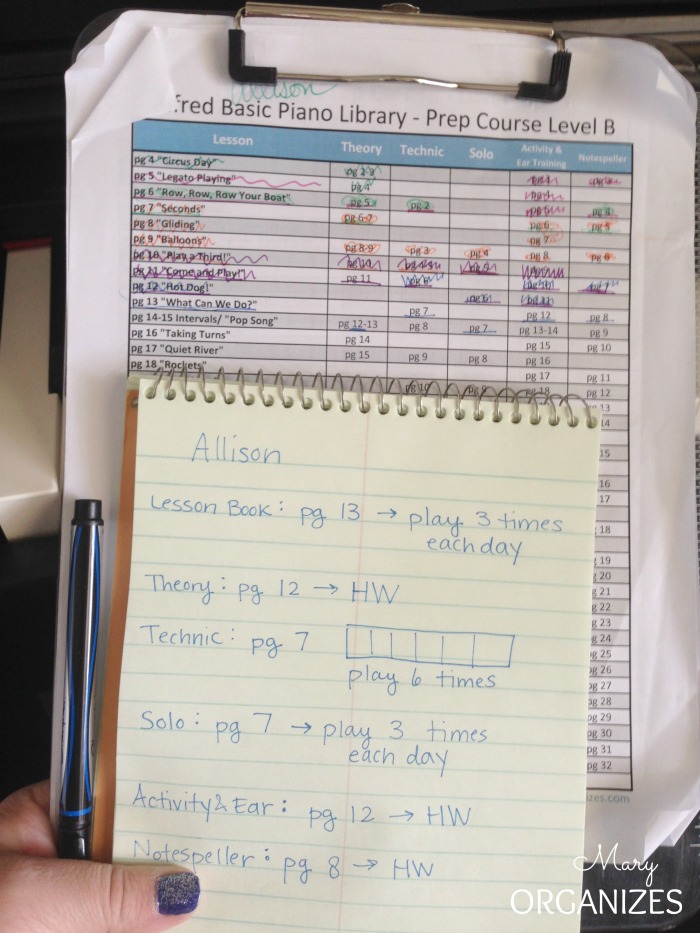 Allison
fred Basic Piano Library - Prep Course Level B
Lesson Theory Technic Solo Activity & Ear Training Notespeller
pg 4 "Circus Day" pg 2-3
pg 5 "Legato Playing" pg 4
pg 6 "Row, Row, Row Your Boat" pg 5 pg 2 pg 4
pg 7 "Seconds" pg 6-7 pg 6 pg 5
pg 8 "Gliding" pg 7
pg 9 "Balloons" pg 8-9 pg 3 pg 4 pg 8 pg 6
pg 10 "Play a Third!"
pg 11 "Come and Play!" pg 11
pg 12 "Hot Dog!"
pg 13 "What Can We Do?" pg 7 pg 12 pg 8
pg 14-15 Intervals/ "Pop Song" pg 12-13 pg 8 pg 7 pg 13-14 pg 9
pg 16 "Taking Turns" pg 14 pg 15 pg 10
pg 17 "Quiet River" pg 15 pg 9 pg 8 pg 16
pg 18 "Rockets" pg 17 pg 11
pg 10 pg 9 18 pg 12
13
14
15
16
17
18
19
20
pg 21
pg 22
pg 23
pg 24
pg 25
pg 26
pg 27
pg 28
pg 29
pg 30
pg 31
pg 32
izes.com
Allison
Lesson Book: pg 13 → play 3 times
each day
Theory: pg 12 → HW
Technic: pg 7
play 6 times
Solo: pg 7 → play 3 times
each day
Activity & Ear: pg 12 → HW
Notespeller: pg 8 → HW
Mary
ORGANIZES